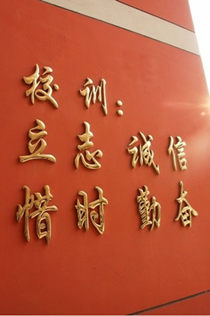 校训：
立志 诚信
惜时 勤奋